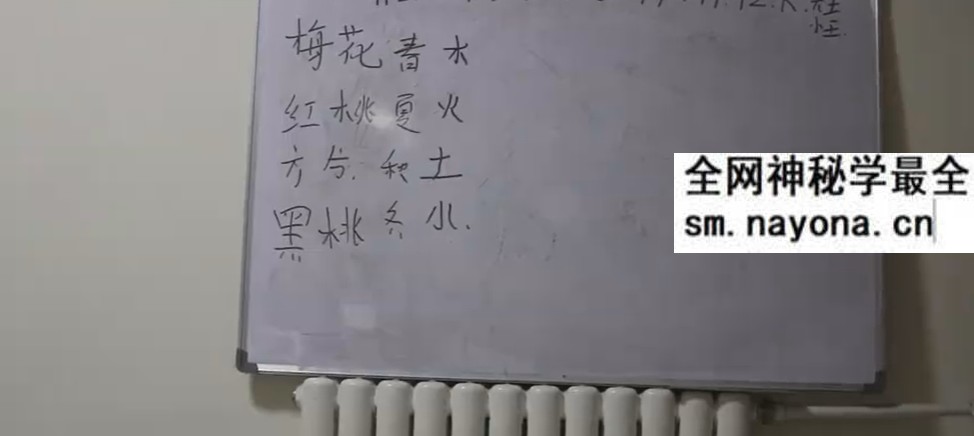 梅花春水
红桃夏火
方片.秋土
黑桃冬小.
全网神秘学最全
sm.nayona.cn